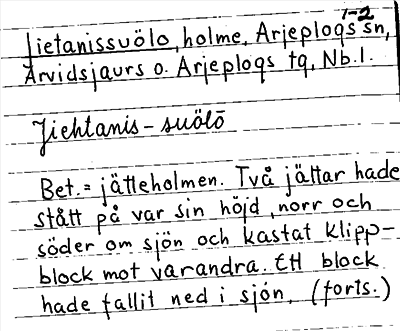 1-2
Jietanissuölo, holme, Arjeplogs sn,
Arvidsjaurs o. Arjeplogs tg, Nb.l.
Jiehtanis-suölō
Bet.= jätteholmen. Två jättar hade
stått på var sin höjd, norr och
söder om sjön och kastat klipp-
block mot varandra. Ett block
hade fallit ned i sjön. (forts.)